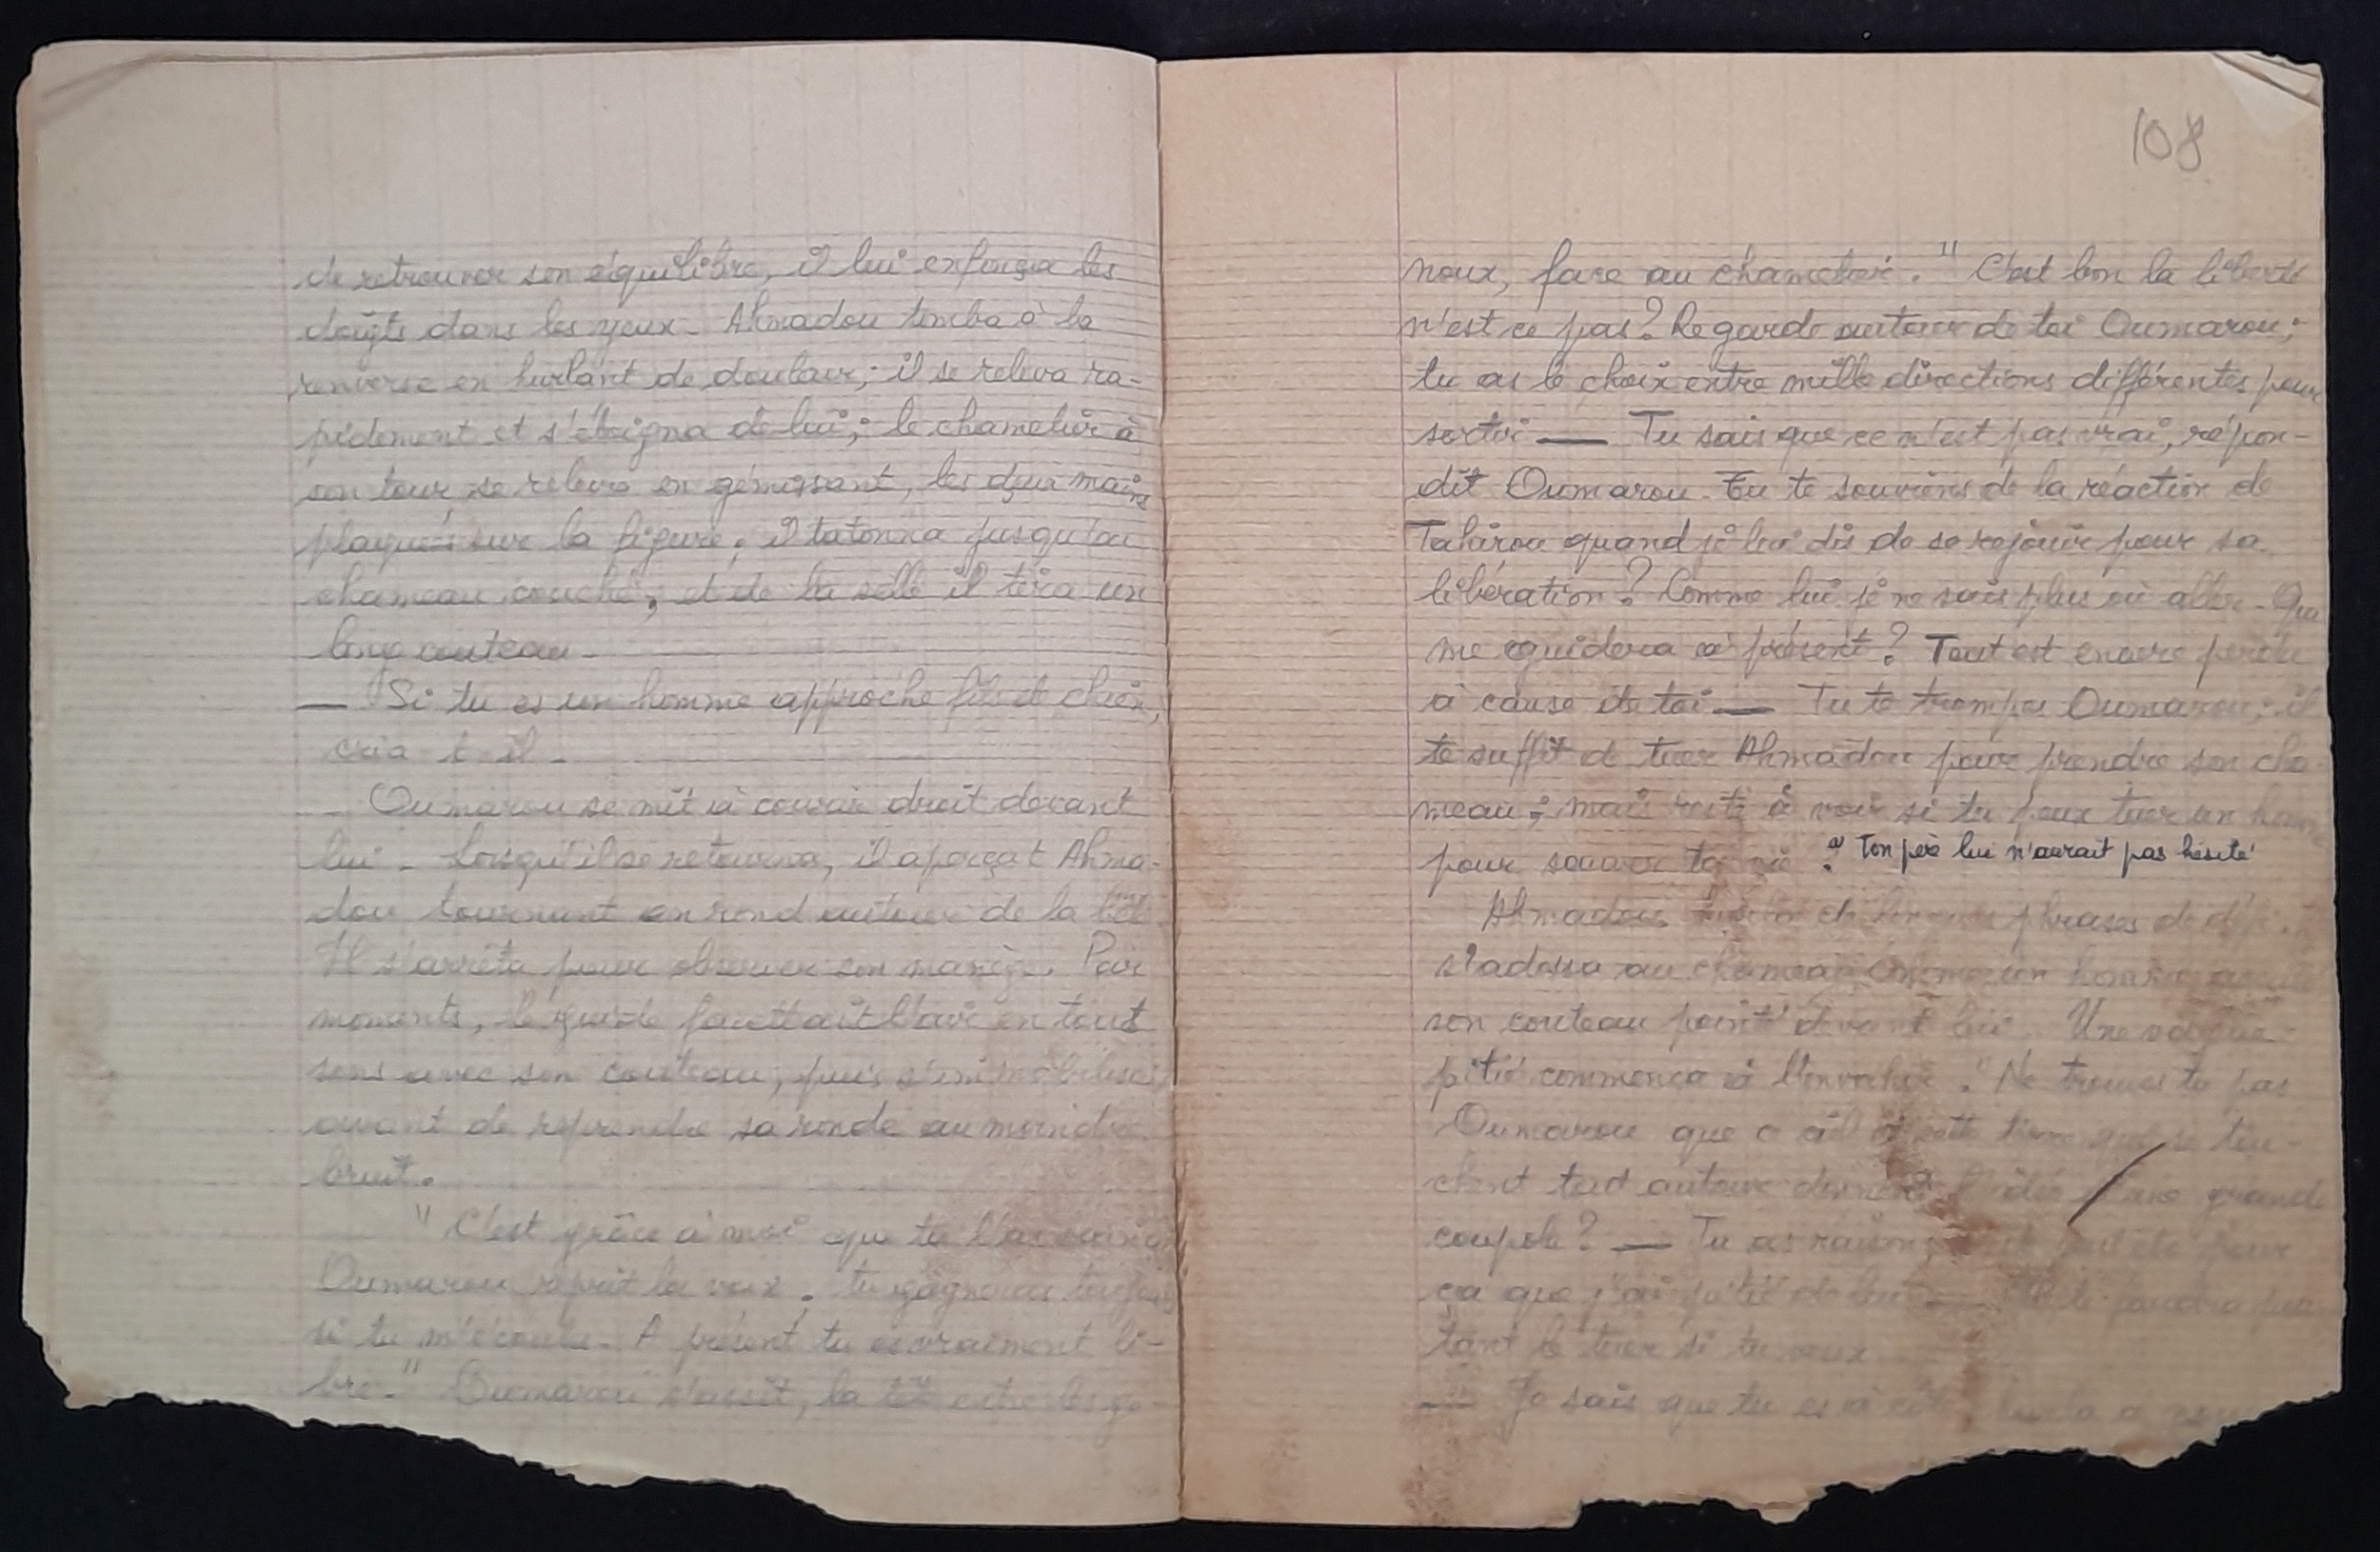 de retrouver son équilibre, il lui enfonça les
doigts dans les yeux. Ahmadou tomba à la
renverse en hurlant de douleur; il se releva ra-
pidement et s'éloigna de lui; le chamelier à
son tour se releva en gémissant, les deux mains
plaqués sur la figure; il tatonna jusqu'au
chameau couché, et de la selle il tira un
long couteau.
— Si tu es un homme approche fils de chien,
cria t-il.
— Oumarou se mit à courir droit devant
lui. Lorsqu'il se retourna, il aperçut Ahma-
dou tournant en rond autour de la bête.
Il s'arrêta pour observer son manège. Par
moments, le guide fouettait l'air en tout
sens avec son couteau, puis s'immobilisait
avant de reprendre sa ronde au moindre
bruit.
" C'est grâce à moi que tu l'as vaincu
Oumarou reprit la voix; tu gagneras toujours
si tu m'écoutes. A présent tu es vraiment li-
bre." Oumarou s'assit, la tête entre les ge-
108
noux, face au chamelier. " C'est bon la liberté
n'est ce pas? Regarde autour de toi Oumarou;
tu as le choix entre mille directions différentes pour
sortir — Tu sais que ce n'est pas vrai, répon-
dit Oumarou. Tu te souviens de la réaction de
Tahirou quand je lui dis de se rejouir pour sa
libération? Comme lui je ne sais plus où aller. Qui
me guidera à présent? Tout est encore perdu
à cause de toi — Tu te trompes Oumarou; il
te suffit de tuer Ahmadou pour prendre son cha-
meau; mais reste à voir si tu peux tuer un homme
pour sauver ta vie ? Ton père lui n'aurait pas hésité
Ahmadou phrases de
s'adossa au chameau comme un homme
son couteau pointé devant lui. Une vague
pitié commença à l'envahir. " Ne trouves tu pas
Oumarou que ce ciel et cette terre qui se tou-
chent tout autour donnent l'idée d'une grande
coupole? — Tu as raison, peut être pour
ça que j'ai pitié de lui — Il te faudra pour-
tant le tuer si tu veux
— Je sais que tu es à côté